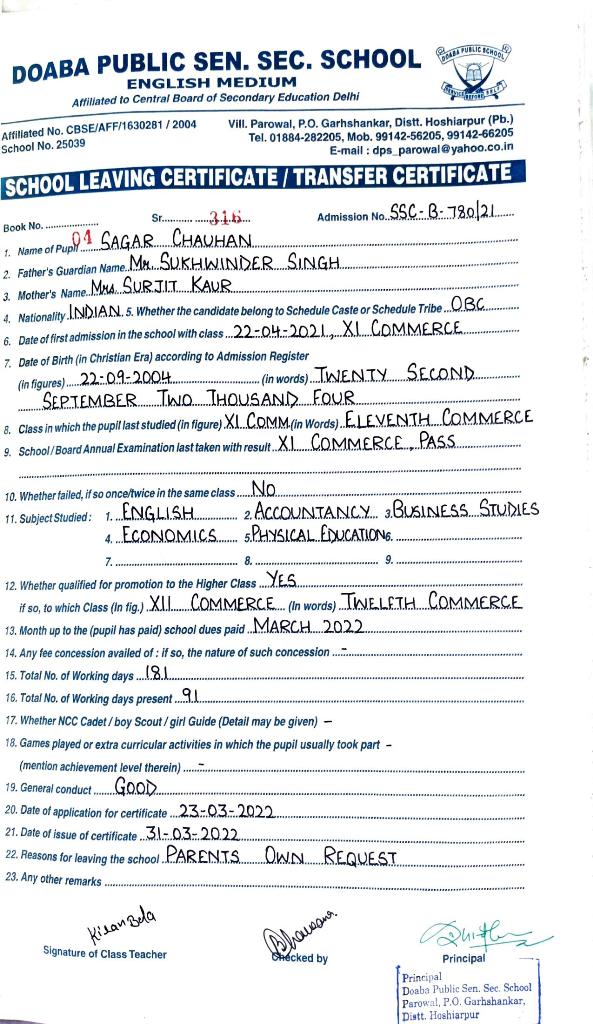 DOABA PUBLIC SEN. SEC. SCHOOL
ENGLISH MEDIUM
Affiliated to Central Board of Secondary Education Delhi
DOABA PUBLIC SCHOOL
SERVICE BEFORE SELF
Affiliated No. CBSE/AFF/1630281 / 2004
School No. 25039
Vill. Parowal, P.O. Garhshankar, Distt. Hoshiarpur (Pb.)
Tel. 01884-282205, Mob. 99142-56205, 99142-66205
E-mail : dps_parowal@yahoo.co.in
SCHOOL LEAVING CERTIFICATE / TRANSFER CERTIFICATE
Book No. 04 Sr. 316 Admission No. SSC-B-780/21
1. Name of Pupil SAGAR CHAUHAN
2. Father's Guardian Name Mr. SUKHWINDER SINGH
3. Mother's Name Mrs SURJIT KAUR
4. Nationality INDIAN 5. Whether the candidate belong to Schedule Caste or Schedule Tribe OBC
6. Date of first admission in the school with class 22-04-2021, XI COMMERCE
7. Date of Birth (in Christian Era) according to Admission Register
(in figures) 22-09-2004 (in words) TWENTY SECOND
SEPTEMBER TWO THOUSAND FOUR
8. Class in which the pupil last studied (in figure) XI COMM (in Words) ELEVENTH COMMERCE
9. School / Board Annual Examination last taken with result XI COMMERCE, PASS
10. Whether failed, if so once/twice in the same class NO
11. Subject Studied : 1. ENGLISH 2. ACCOUNTANCY 3. BUSINESS STUDIES
4. ECONOMICS 5. PHYSICAL EDUCATION 6.
7. 8. 9.
12. Whether qualified for promotion to the Higher Class YES
if so, to which Class (In fig.) XII COMMERCE (In words) TWELFTH COMMERCE
13. Month up to the (pupil has paid) school dues paid MARCH 2022
14. Any fee concession availed of : if so, the nature of such concession -
15. Total No. of Working days 181
16. Total No. of Working days present 91
17. Whether NCC Cadet / boy Scout / girl Guide (Detail may be given) -
18. Games played or extra curricular activities in which the pupil usually took part -
(mention achievement level therein) -
19. General conduct GOOD
20. Date of application for certificate 23-03-2022
21. Date of issue of certificate 31-03-2022
22. Reasons for leaving the school PARENTS OWN REQUEST
23. Any other remarks
Kiran Bela
Bhawana
Signature of Class Teacher Checked by Principal
Principal
Doaba Public Sen. Sec. School
Parowal, P.O. Garhshankar,
Distt. Hoshiarpur